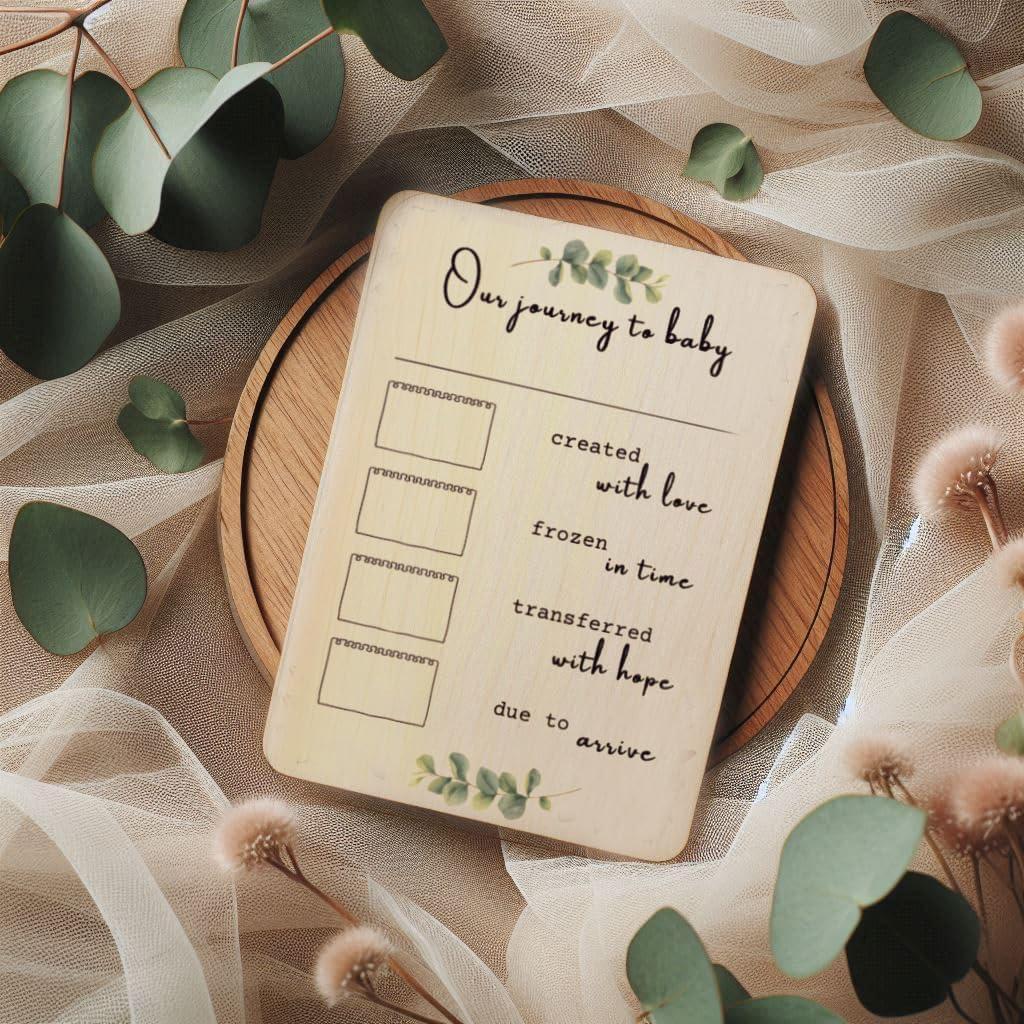 Our journey to baby
created
with love
frozen
in time
transferred
with hope
due to
arrive